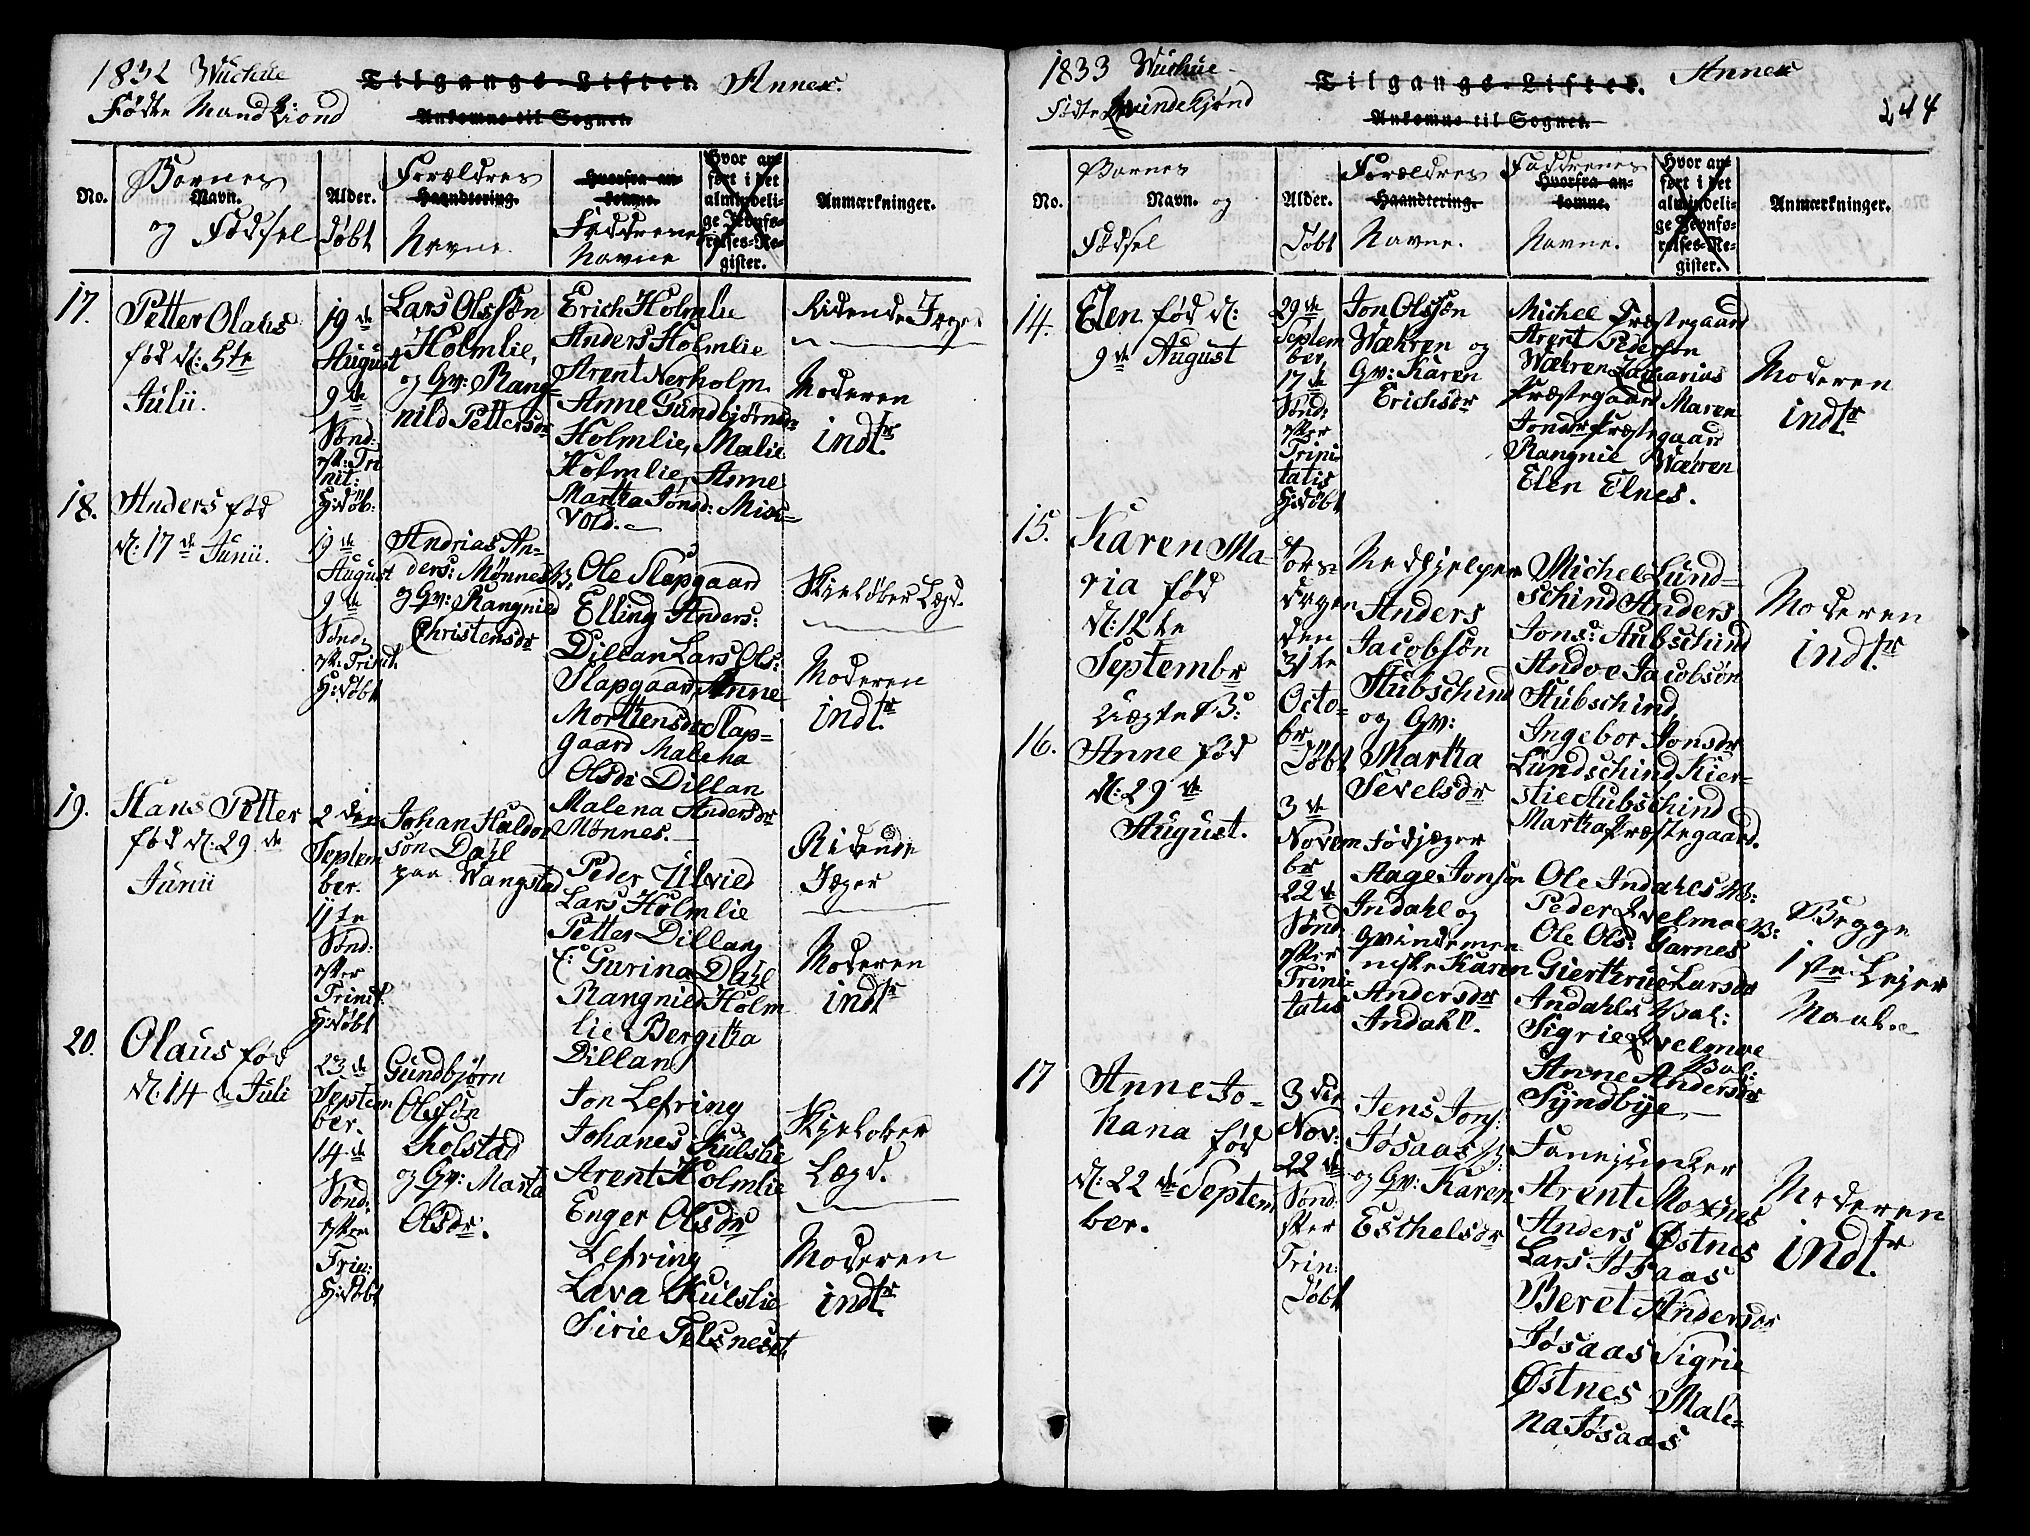 1832 Wuckue Tilgangs-Lister. Annex.
Fødte Mandkiønd Ankomne til Sognet.
No.
Børnes
Navn.
og Fødsel
Alder.
Døbt
Forældres
Haandtering.
Navne
Hvorfra an-
komne.
Faddrenes
Navne
Hvor an-
ført i det
almindeli-
ge Jevnfø-
relses-Re-
gister.
Anmærkninger.
17.
Petter Olaus
fød d: 5te
Julii.
19de
August
9de
Sønd:
eft: Tri
nit:
H: døb:
Lars Olssøn
Holmlie,
og Gv: Rang-
nild Pettersdr
Erich Holmlie
Anders Holmlie
Arent Nerholm
Anne Gundbjørnsdr
Holmlie, Malie
Holmlie, Anne
Martha Jonsd:
vold.
Ridende Jæger
Moderen
indtr.
18.
Anders fød
d: 17de Junii.
19de
August
9de
Sønd:
eft: Trinit.
H: døbt
Andrias An-
ders: Mønnes
og Gv: Rangnild
Christensdr
Ole Slapgaard
Elling Anders:
Dillan Lars Ols:
Slapgaard Anne
Morttensdr Slap-
gaard Malena
Olsdr Dillan
Malena Andersdr
Mønnes.
Skieløber Lægd.
Moderen
indtr.
19.
Hans Petter
fød d: 29de
Junii
2den
Septem
ber.
11te
Sønd:
efter
Trinit.
H: døbt
Johan Haldor
søn Dahl
paa Wangstad
Peder Ulvild
Lars Holmlie
Petter Dillan
E: Gurina Dahl
Rangnild Holm
lie Bergitha
Dillan
Ridende
Jæger
Moderen
indtr
20.
Olaus fød
d: 14de Juli
23de
Septem
ber.
14de
Sønd:
efter
Trin:
H: døbt
Gundbjørn
Olssøn
Kolstad
og Gv: Marta
Olsdr.
Jon Lefring
Johanes Kulslie
Arent Holmlie
Enger Olsdr
Lefring
Lava Kulslie
Sirie Telsneset
Skieløber
Lægd.
Moderen
indtr.
1833 Wuckue Tilgangs-Lister. Annex
Fødte Qvindekjønd Ankomne til Sognet. 244
No.
Børnes
Navn. og
Fødsel
Alder.
Døbt
Forældres
Haandtering.
Navne.
Faddrenes
Hvorfra an-
komne.
Navne.
Hvor an-
ført i det
almindeli-
ge Jevnfø-
relses-Re-
gister.
Anmærkninger.
14.
Elen fød d:
9de August
29de
Septem
ber,
17de
Sønd:
efter
Trini
tatis
H: døbt
Jon Olssøn
Wæhren og
Gv: Karen
Erichsdr
Michel Præstegaard
Arent Pederson
Wæhren Zacharias
Præstegaard Maren
Jonsdr Præstegaard
Rangnie Wæhren
Elen Elnes.
Moderen
indtr.
15.
Karen Ma-
ria fød
d: 12te
Septembr
uægte B:
Tors-
dagen
den
31te
Octo-
br
Døbt
Medhjelper
Anders
Jacobsøn
Stubschind
og Gv:
Martha
Sevelsdr
Michel Lund-
schind Anders
Jons: Stubschind
Andve Jacobsøn
Stubschind,
Ingebor Jonsdr
Lundschind Kier-
stie Stubschind
Martha Præstegaard.
Moderen
indtr.
16.
Anne fød
d: 29de
August.
3de
Novem
br
22de
Sønd
efter
Trini-
tatis
Fodjæger
Aage Jonsøn
Indahl og
qvindemen
neske Karen
Andersdr
Indahl.
Ole Indahlsv:
Peder Qvelmoe v:
Ole Ols: Garnes
Giertrue Larsdr
Indahls Val:
Sigrie Qvelmoe
Val:
Anne Andersdr
Syndbye
Begge
1ste Lejer
Maal.
17
Anne Jo-
hana fød
d: 22de Septem
ber.
3die
Nov:
22de
Sønd.
efter
Trin:
Døbt
Jens Jons:
Jøsaas
og Gv: Karen
Esthelsdr
Fanejunker
Arent Moxnes
Anders Østnes
Lars Jøsaas
Beret Andersdr
Jøsaas Sigrie
Østnes Male-
na Jøsaas
Moderen
indtr.